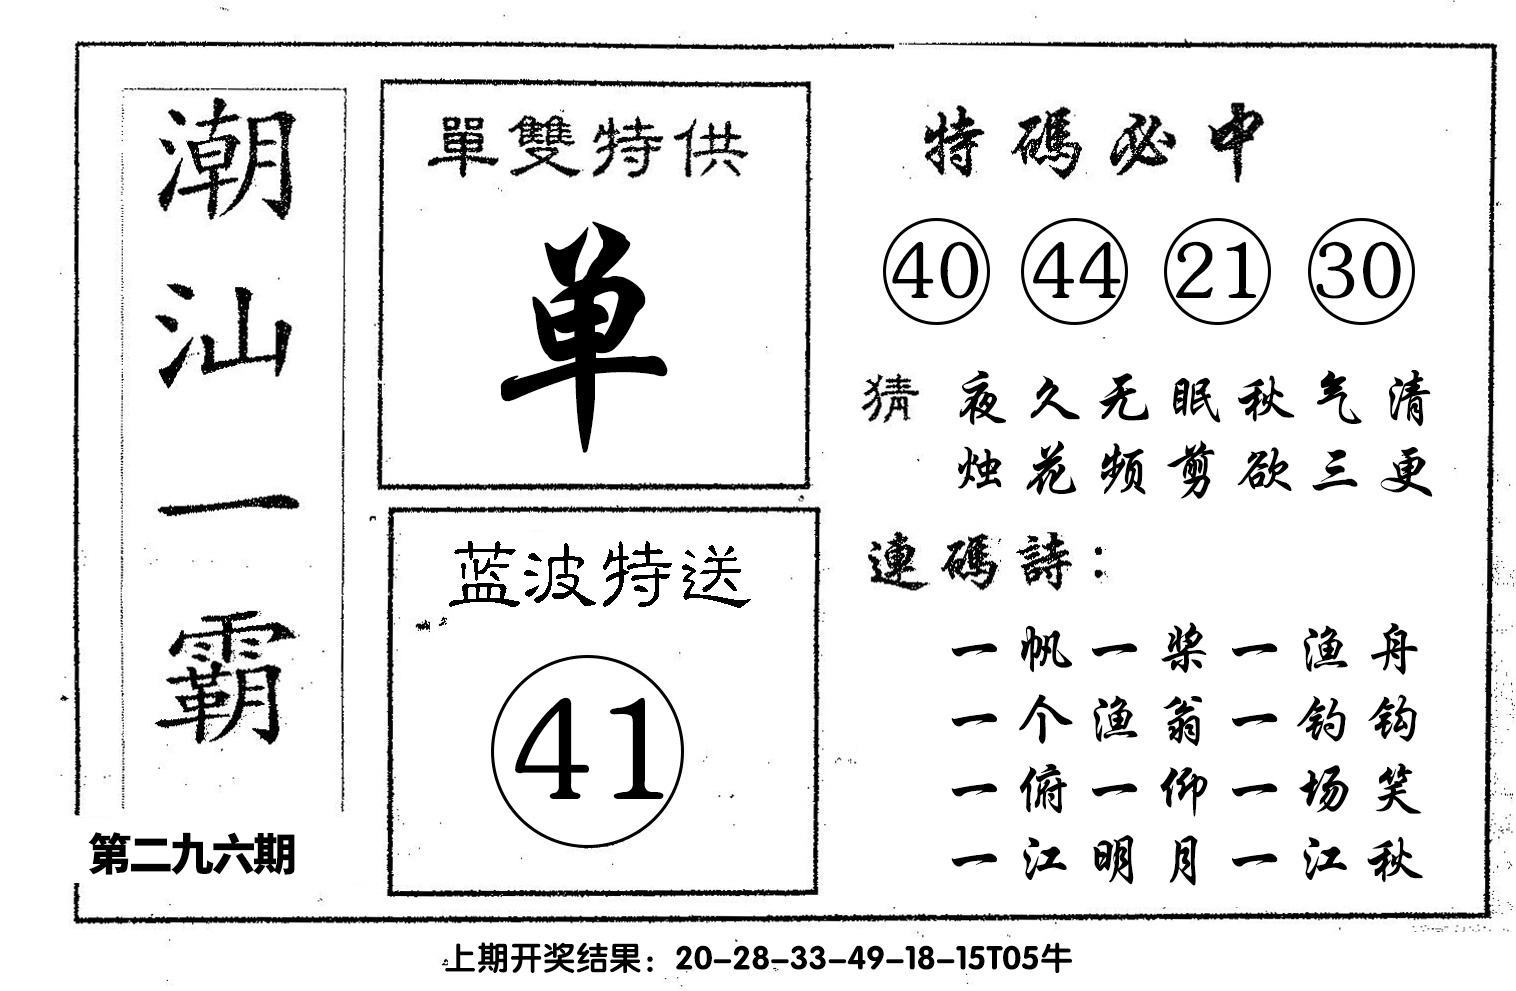 潮汕一霸
第二九六期
單雙特供
单
蓝波特送
41
特碼必中
40 44 21 30
猜 夜久无眠秋气清
烛花频剪欲三更
連碼詩：
一帆一桨一渔舟
一个渔翁一钓钩
一俯一仰一场笑
一江明月一江秋
上期开奖结果：20-28-33-49-18-15T05牛